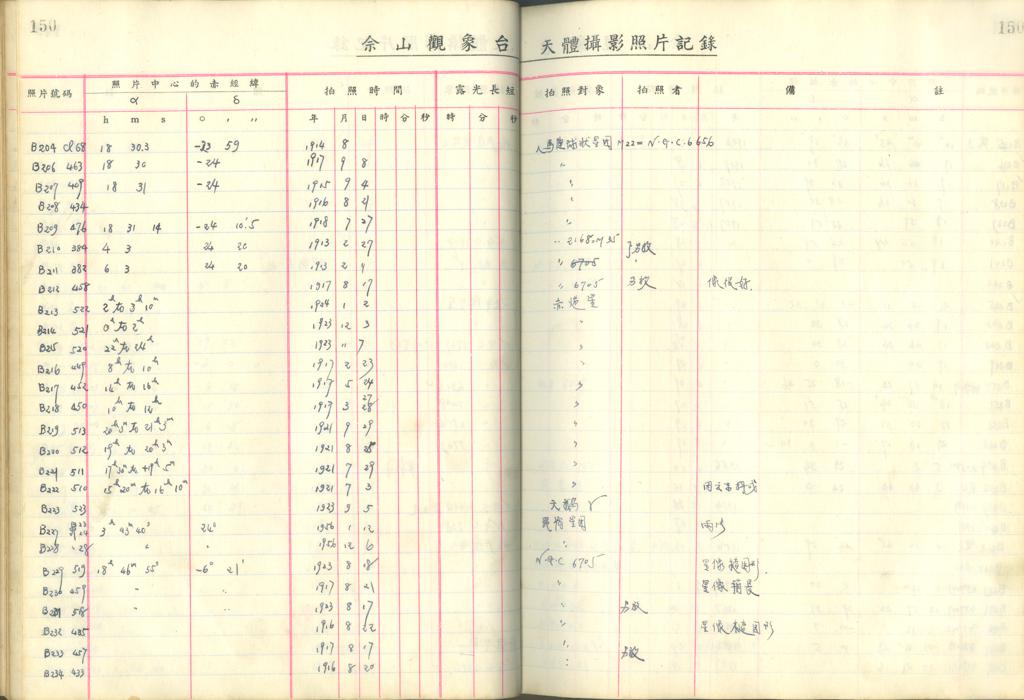 150
150
佘山觀象台 天體攝影照片記錄
照片號碼 照片中心的赤經緯 拍照時間 露光長短 拍照對象 拍照者 備 註
α δ
h m s ° ′ ″ 年 月 日 時 分 秒 時 分 秒
B204 cl68 18 30.3 -23 59 1914 8 人馬座球狀星团 M22=N.G.C.6656
B206 463 18 30 -24 1917 9 8 〃
B207 409 18 31 -24 1915 9 4 〃
B208 434 1916 8 21 〃
B209 476 18 31 14 -24 10'.5 1918 7 27 〃
B210 384 4 3 24 20 1913 2 27 〃
B211 382 6 3 24 20 1913 2 9 〃 6705
B212 458 1917 8 17 〃 6705 像很好
B213 522 2ʰ 至 3ʰ 10ᵐ 1924 1 2
B214 521 0ʰ 至 2ʰ 1923 12 3 〃
B215 520 22ʰ 至 24ʰ 1923 11 7 〃
B216 449 8ʰ 至 10ʰ 1917 2 23 〃
B217 452 14ʰ 至 16ʰ 1917 5 24 〃
B218 450 10ʰ 至 12ʰ 1917 3 27 28 〃
B219 513 20ʰ3ᵐ 至 21ʰ3ᵐ 1921 9 29 〃
B220 512 19ʰ 至 20ʰ3ᵐ 1921 8 25 〃
B221 511 1921 7 29 〃
B222 510 15ʰ20ᵐ 至 16ʰ10ᵐ 1921 7 3 〃
B223 523 1923 9 5 天鵝 γ
B227 3ʰ 43ᵐ 40ˢ 24° 1956 1 12 星团
B228 28 〃 〃 1956 12 6 〃
B229 519 18ʰ 46ᵐ 55ˢ -6° 21' 1923 8 18 N.G.C 6705 星像橢圆形
B230 459 〃 〃 1917 8 21 〃 星像稍長
B231 518 1923 8 17 〃
B232 435 1916 8 22 星像 圆形
B233 457 1917 8 17 〃
B234 433 1916 8 20 〃